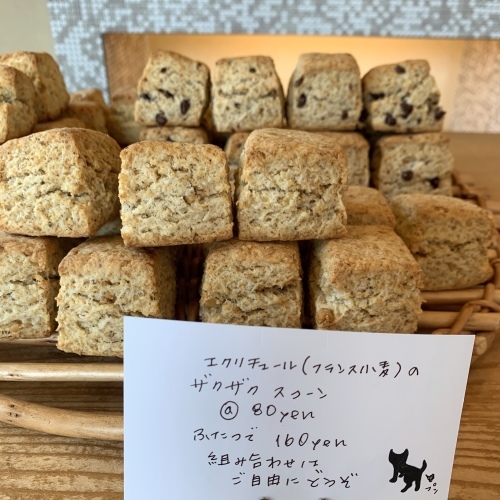 エクリチュール(フランス小麦)の
ザクザク スコーン
@ 80yen
ふたつで 160yen
組み合わせは
ご自由にどうぞ